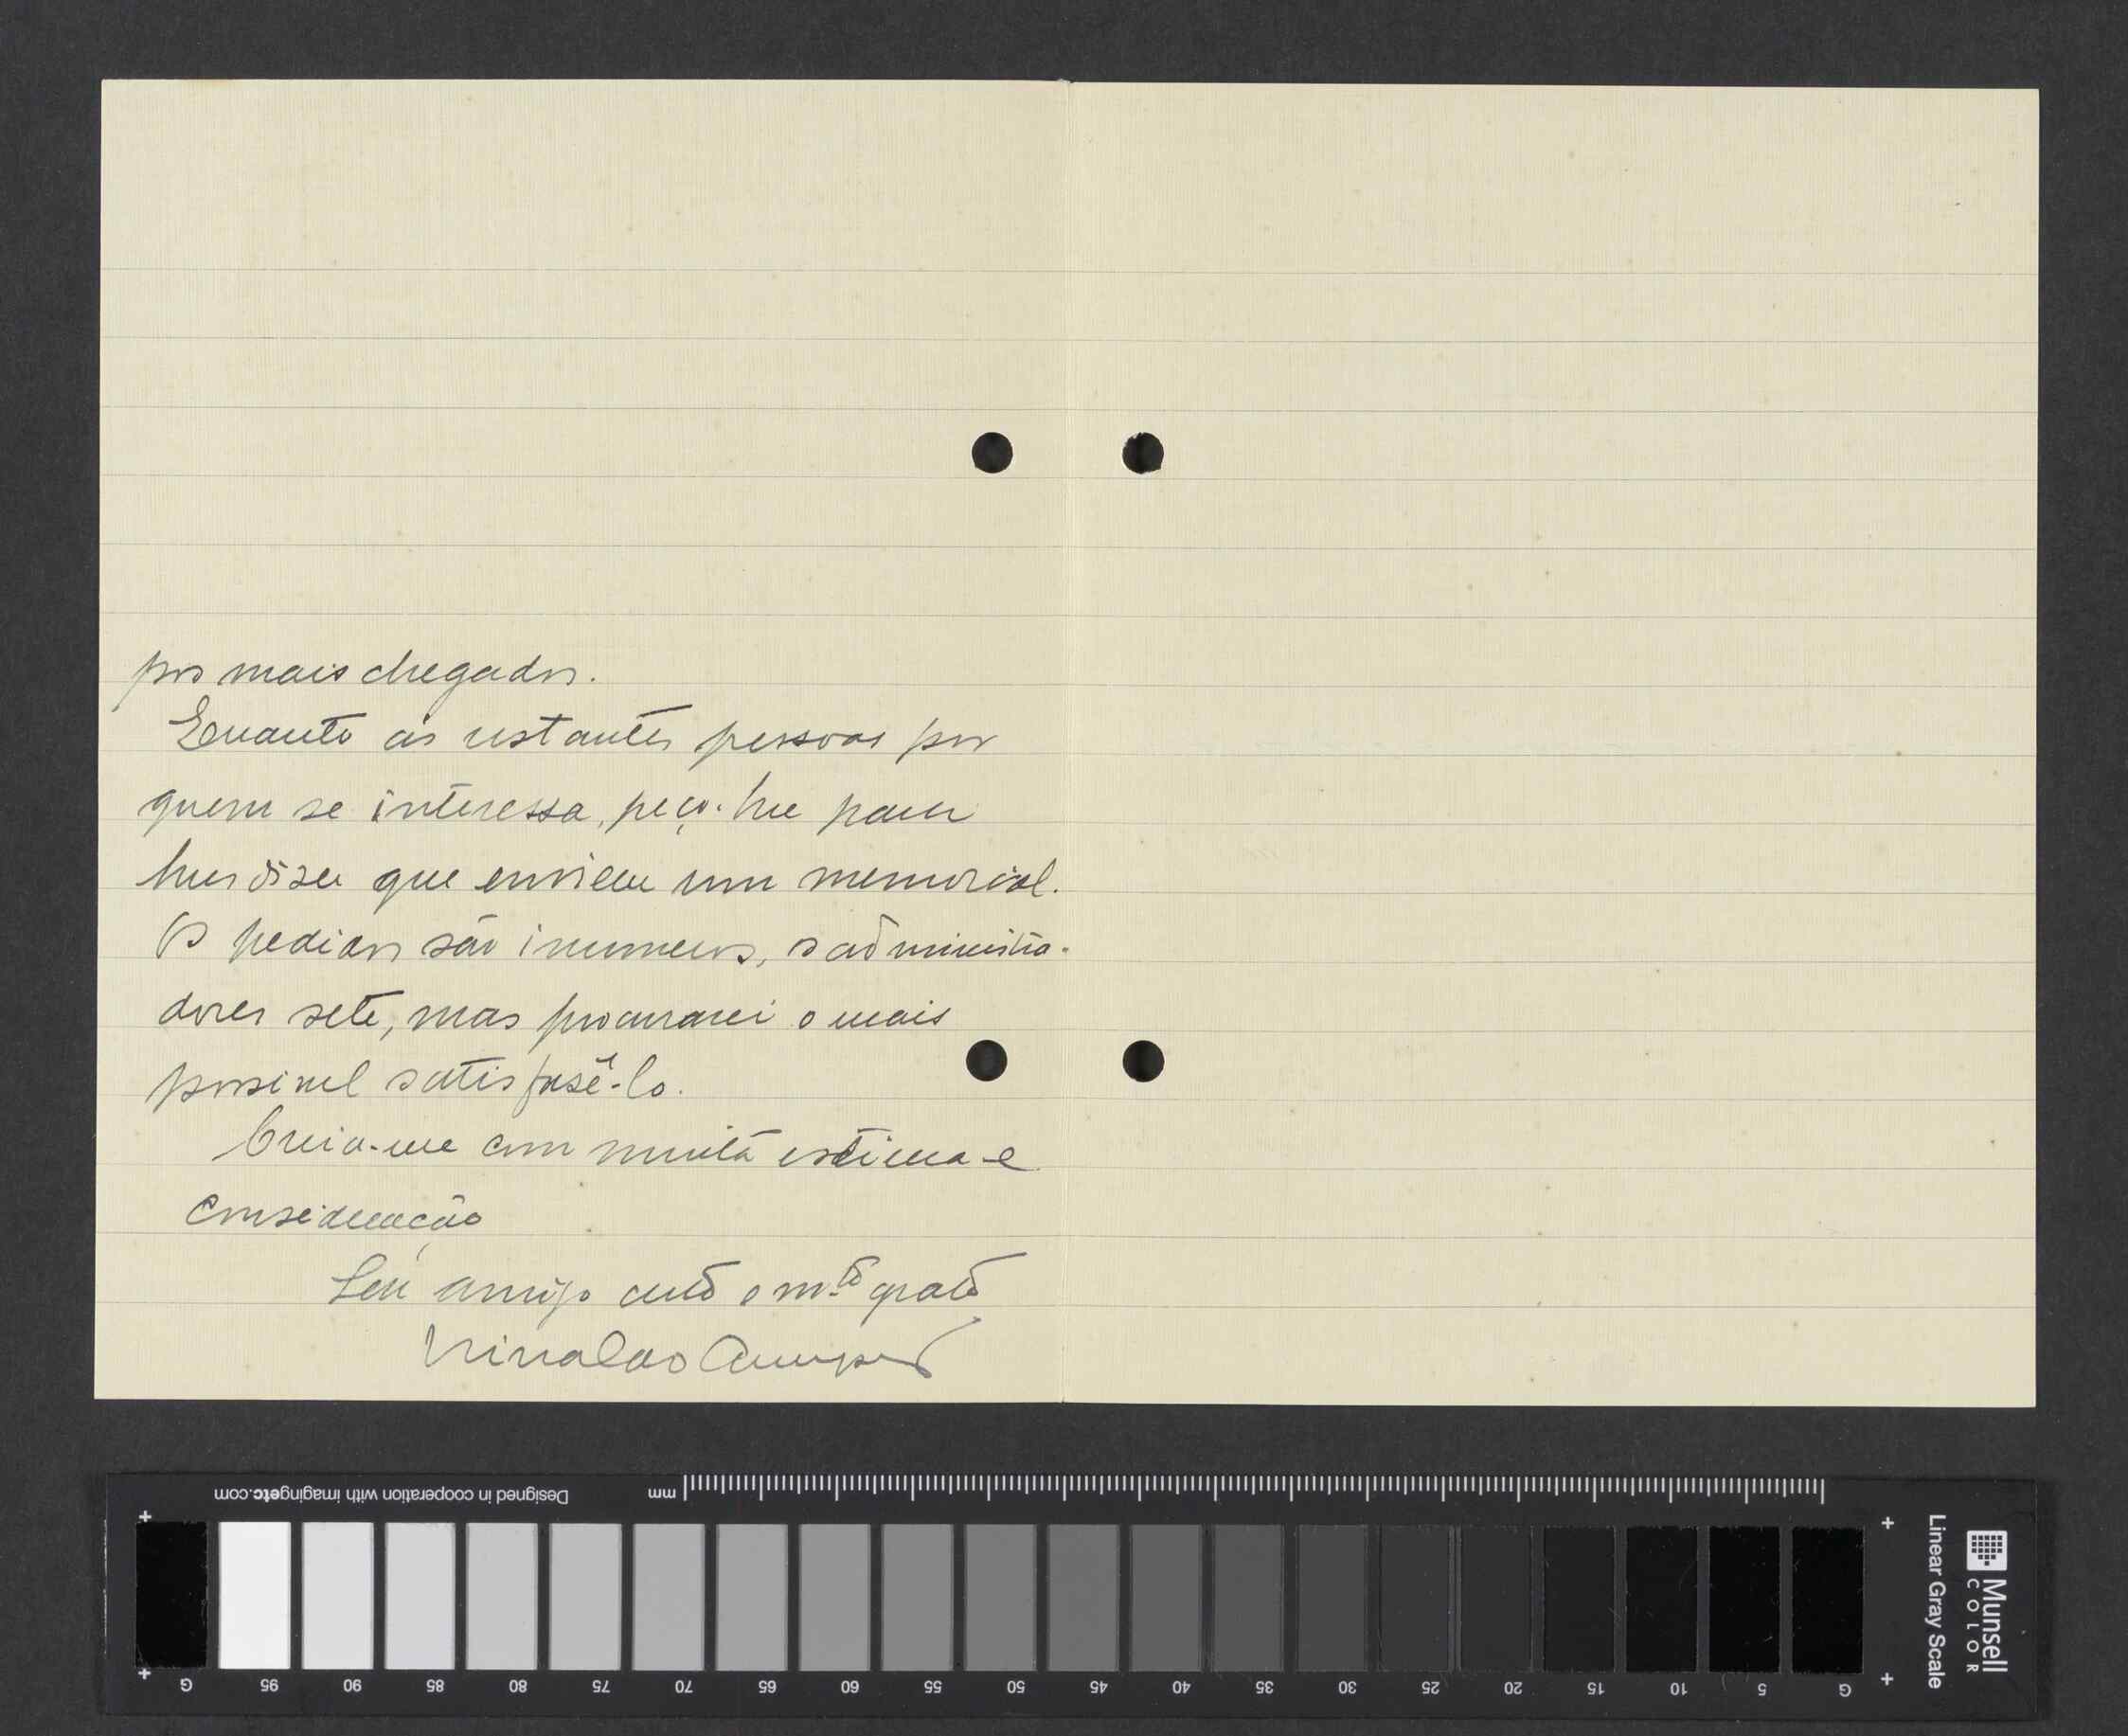 pos mais chegados.
Quanto às restantes pessoas por
quem se interessa, peço-lhe para
lhes dizer que enviem um memorial.
Os pedidos são inumeros, os administra-
dores sete, mas procurarei o mais
possivel satisfazê-lo.
Creia-me com muita estima e
consideração
Seu amigo e m.to grato
Designed in cooperation with imagingetc.com
mm
G 95 90 85 80 75 70 65 60 55 50 45 40 35 30 25 20 15 10 5 G
Linear Gray Scale
Munsell
COLOR